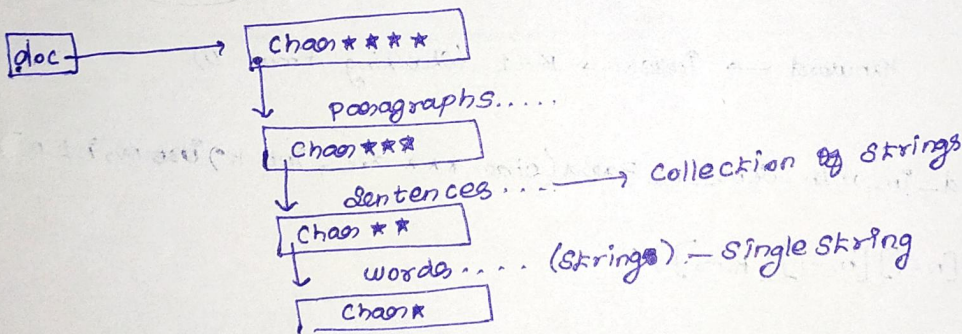 doc
char ★ ★ ★ ★
paragraphs.....
char ★★★
sentences.... → collection of strings
char ★ ★
words.... (strings) - single string
char★